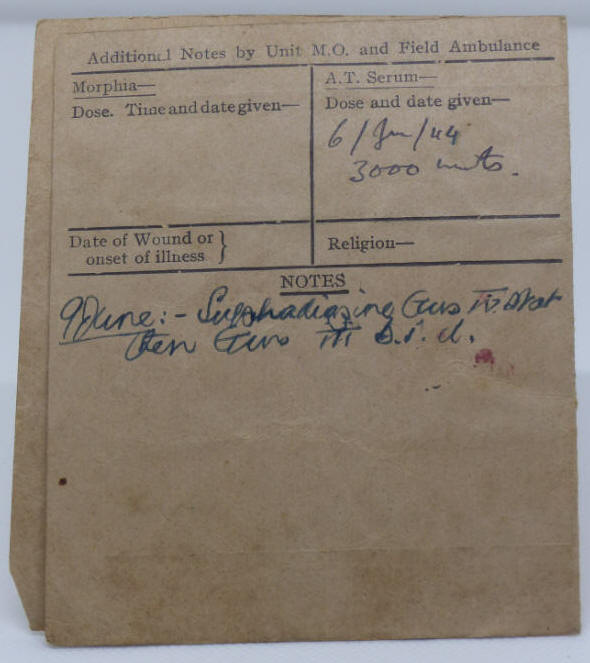 Additional Notes by Unit M.O. and Field Ambulance
Morphia—
Dose. Time and date given—
A.T. Serum—
Dose and date given—
6/Jun/44
3000 units.
Date of Wound or }
onset of illness
Religion—
NOTES
9 June:- Sulphadiazine Gms IV stat
then Gms III